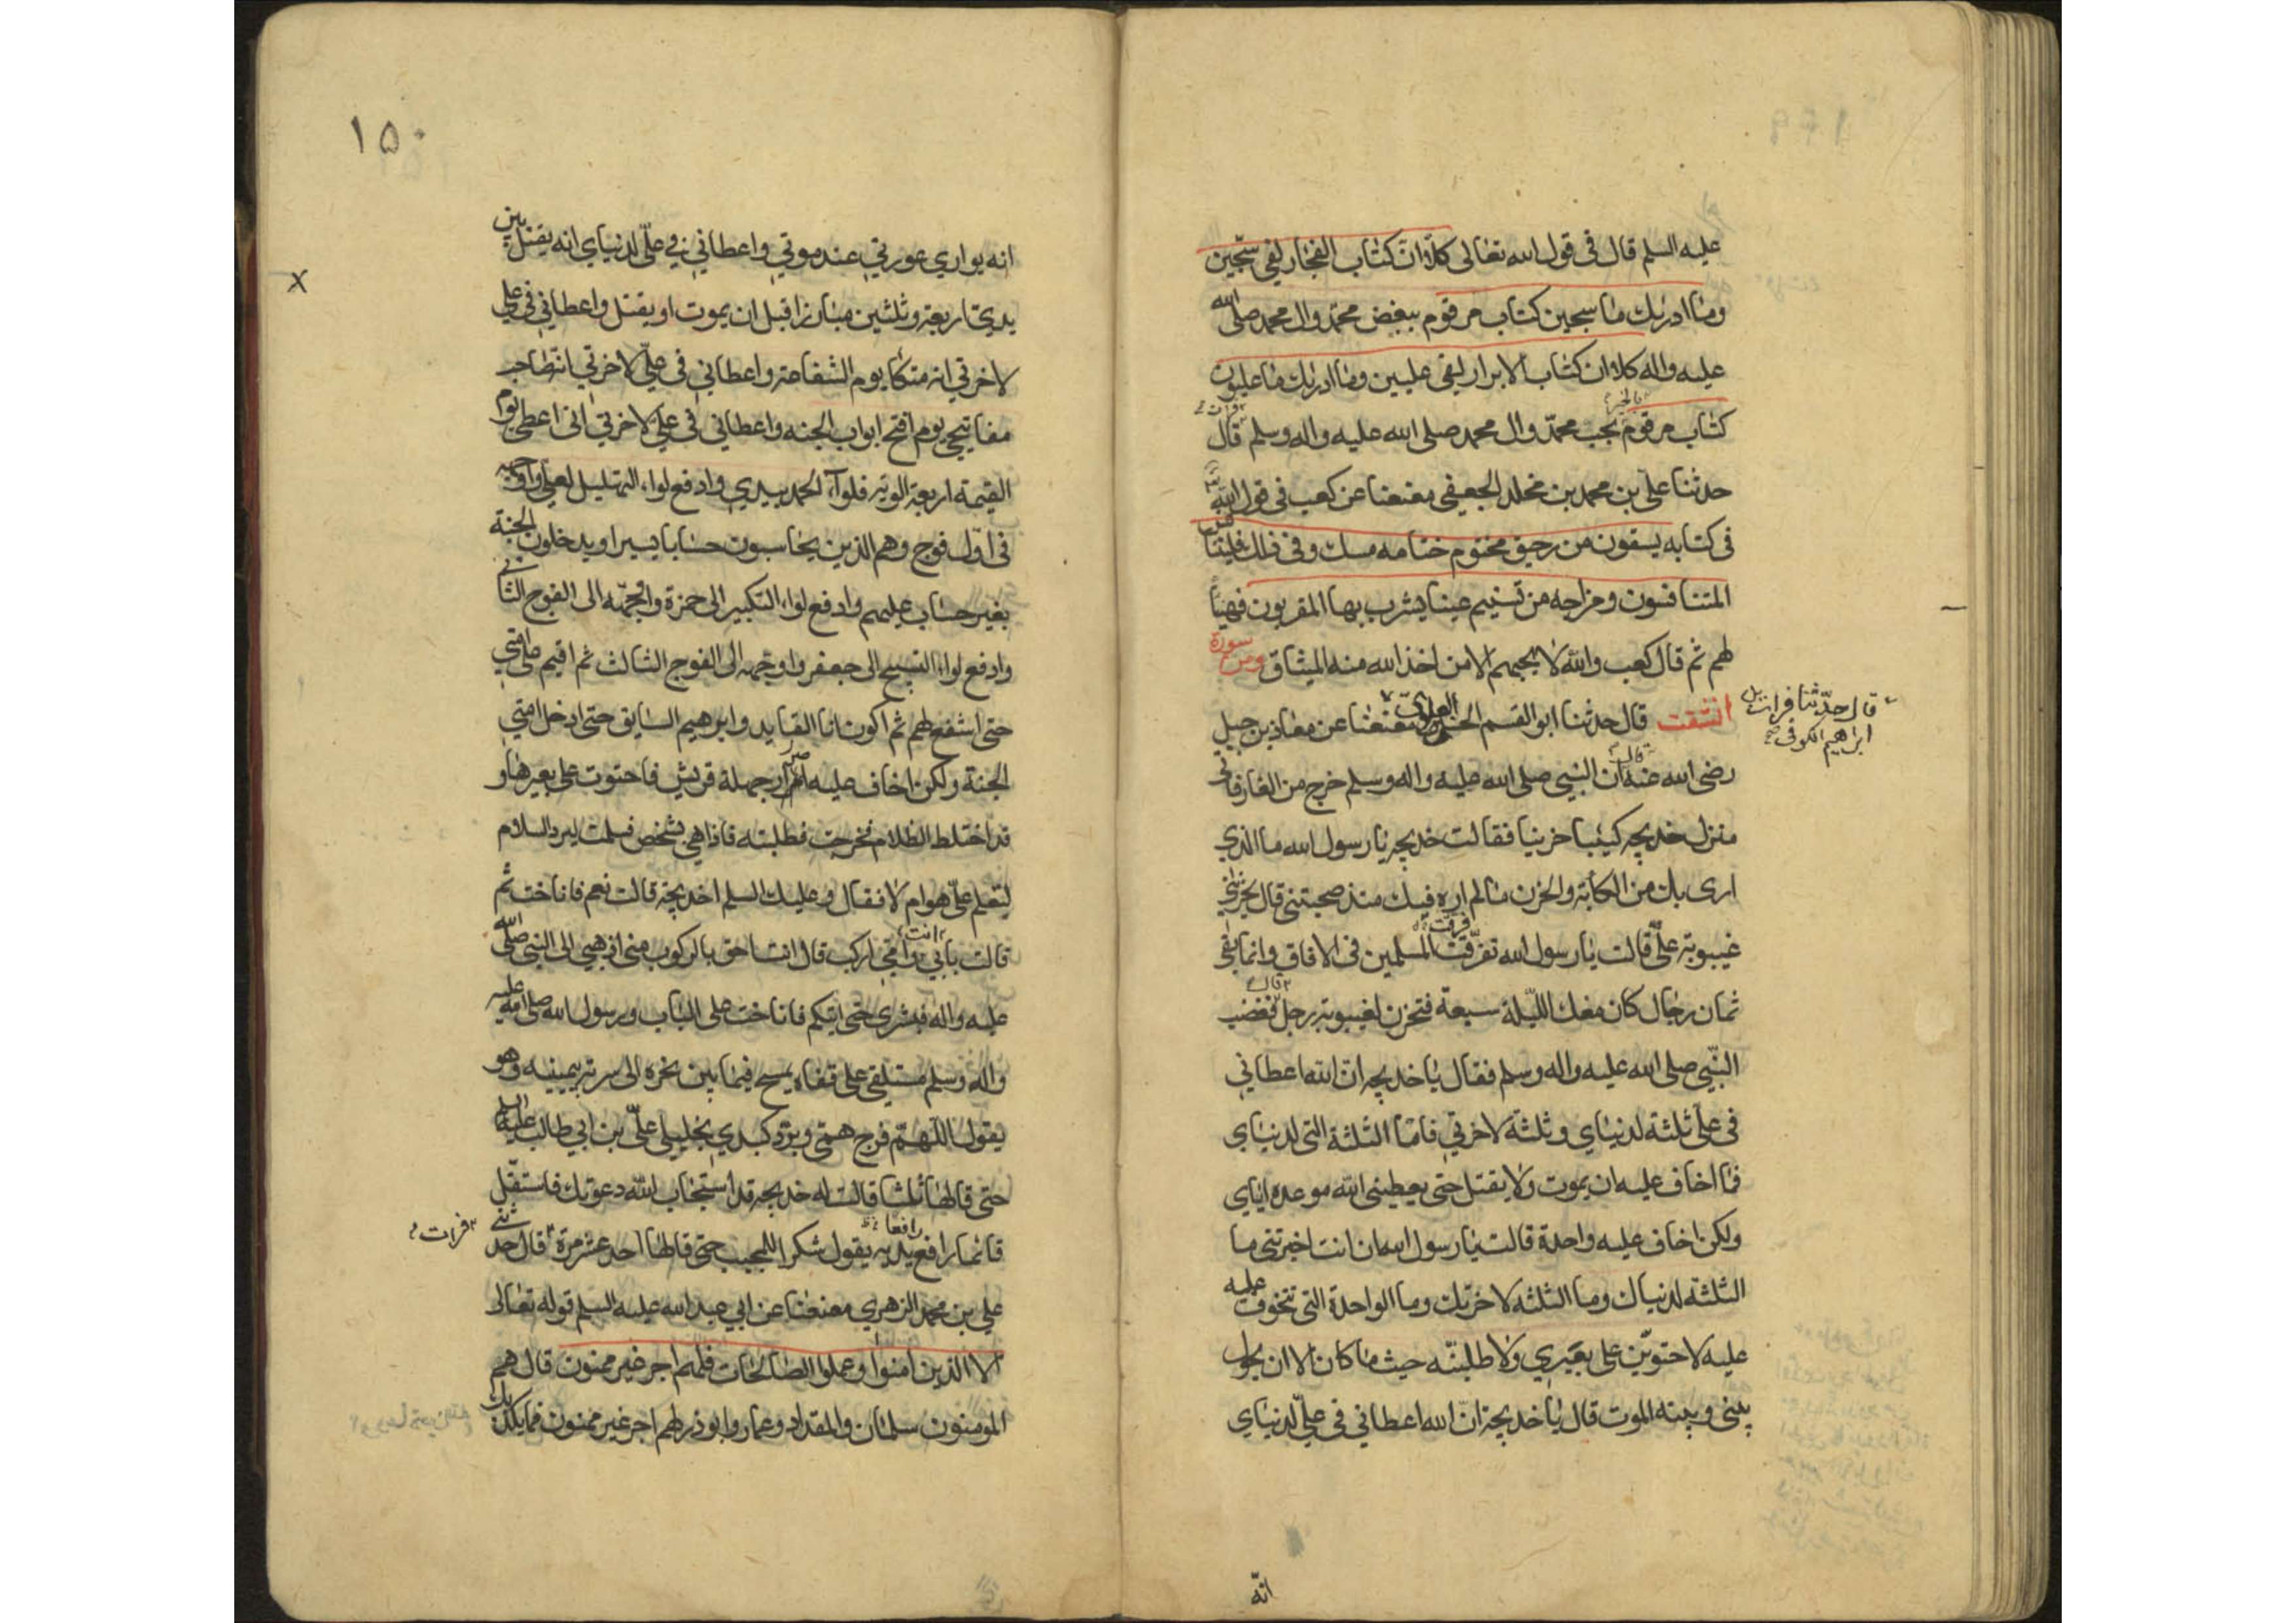 عليه السلم قال فى قول الله تعالى كلا ان كتاب الفجار لفى سجين
وما ادريك ما سجين كتاب مرقوم ببغض محمد وال محمد صلى الله
عليه واله كلا ان كتاب الابرار لفى عليين وما ادريك ما عليون
كتاب مرقوم بحب محمد وال محمد صلى الله عليه واله وسلم قال
بالخير
فرات
حدثنا على بن محمد بن مخلد الجعفى معنعنا عن كعب فى قول الله
فى كتابه يسقون من رحيق مختوم ختامه مسك وفى ذلك فليتنا
المتنافسون ومزاجه من تسنيم عينا يشرب بها المقربون فهنيا
لهم ثم قال كعب والله لا يحبهم الا من اخذ الله منه الميثاق ومن سورة
انشقت قال حدثنا ابو القسم العلوى معنعنا عن معاذ بن جبل
قال حدثنا فرات بن
ابراهيم الكوفى صح
رضى الله عنه قال ان النبي صلى الله عليه واله وسلم خرج من الغار فاتى
منزل خديجه كيئبا حزينا فقالت خديجه يا رسول الله ما الذي
ارى بك من الكأبة والحزن ما لم اره فيك منذ صحبتنى قال يحزننى
غيبوبة على قالت يا رسول الله تفرقت المسلمين فى الافاق وانما بقى
فرقت
ثمان رجال كان معك الليلة سبعة فتحزن لغيبوبة رجل فغضب
قال
النبي صلى الله عليه واله وسلم فقال يا خديجه ان الله اعطاني
فى على ثلثة لدنياي وثلثة لاخرتي فاما الثلثة التى لدنياي
فما اخاف عليه ان يموت ولا يقتل حتى يعطينى الله موعده اياي
ولكن اخاف عليه واحدة قالت يا رسول الله ان انت اخبرتنى ما
الثلثة لدنياك وما الثلثه لاخرتك وما الواحدة التى تتخوف عليه
عليه لاحتوين على بعيري ولاطلبنه حيث ما كان الا ان يحول
بينى وبينه الموت قال يا خديجة ان الله اعطاني فى على لدنياي
انه
١٥٠
انه يواري عورتي عند موتي واعطاني في على لدنياي انه يقتل بين
يدي اربعة وثلثين مبارزا قبل ان يموت او يقتل واعطاني في على
لاخرتي انه متكاي يوم الشفاعة واعطاني فى على لاخرتي انه صاحب
مفاتيحي يوم افتح ابواب الجنه واعطاني فى على لاخرتي انى اعطى يوم
القيمة اربعة الوية فلواء الحمد بيدي وادفع لواء التهليل لعلى واوجهه
فى اول فوج وهم الذين يحاسبون حسابا يسيرا ويدخلون الجنة
بغير حساب عليهم وادفع لواء التكبير الى حمزة واوجهه الى الفوج الثانى
وادفع لواء التسبيح الى جعفر واوجهه الى الفوج الثالث ثم اقيم على امتي
حتى اشفع لهم ثم اكون انا القايد وابرهيم السايق حتى ادخل امتي
الجنة ولكن اخاف عليه اضرار جهلة قريش فاحتوت على بعيرها و
قد اختلط الظلام فخرجت فطلبته فاذا هي بشخص فسلمت ليرد السلام
لتعلم على هو ام لا فقال وعليك السلم اخديجة قالت نعم فاناخت ثم
قالت بابي انت وامي اركب قال انت احق بالركوب منى اذهبي الى النبي صلى الله
عليه واله فبشري حتى اتيكم فاناخت على الباب ورسول الله صلى الله عليه
واله وسلم مستلقى على قفاه يمسح فيما بين نحره الى سرته بيمينه وهو
يقول اللهم فرج همى وبرد كبدي بخليلي على بن ابي طالب عليه السلم
حتى قالها ثلثا قالت له خديجه قد استجاب الله دعوتك فاستقل
قائما رافع يديه يقول شكرا للمجيب حتى قالها احد عشر مرة قال حدثنى
رافعا
فرات
على بن محمد الزهري معنعنا عن ابي عبد الله عليه السلم قوله تعالى
الا الذين امنوا وعملوا الصالحات فلهم اجر غير ممنون قال هم
المومنون سلمان والمقداد وعمار وابوذر لهم اجر غير ممنون فما يكذبك